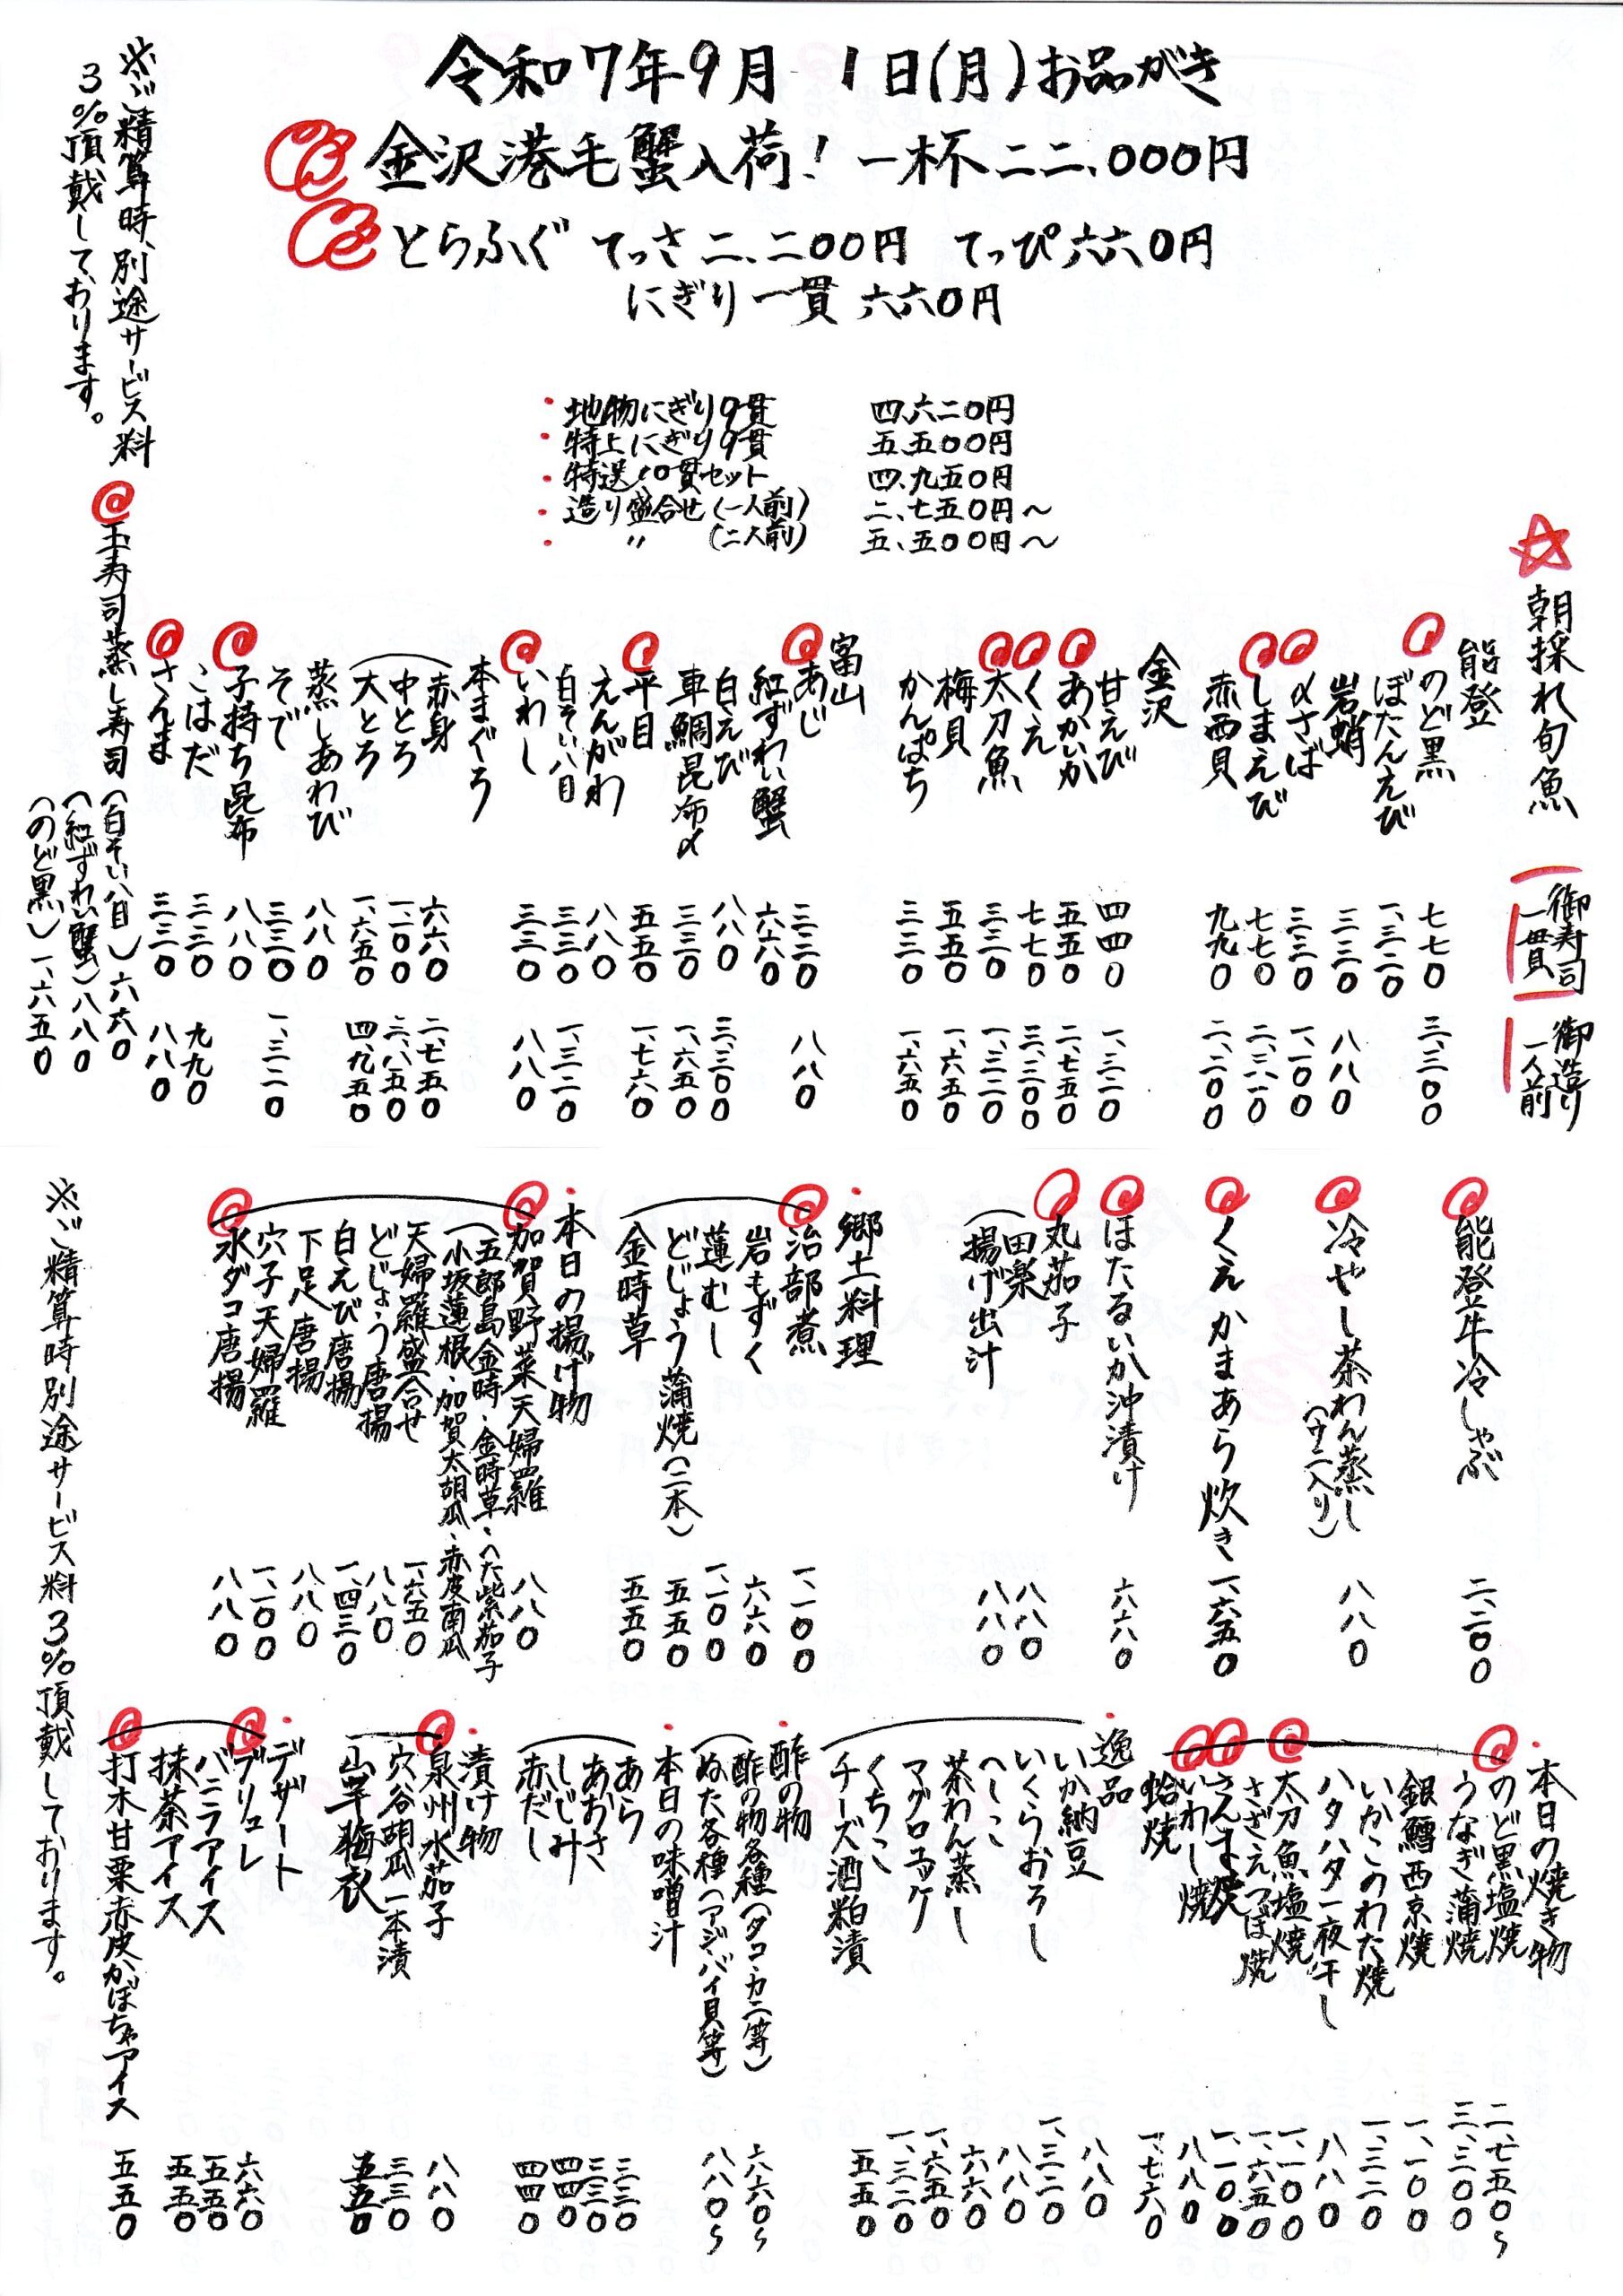 令和7年9月 1日(月)お品がき
金沢港毛蟹入荷! 一杯二二、000円
とらふぐ てっさ二、二00円 てっぴ六六0円
にぎり一貫 六六0円
・地物にぎり9貫 四、六二0円
・特上にぎり9貫 五、五00円
・特選10貫セット 四、九五0円
・造り盛合せ(一人前) 二、七五0円〜
・〃(二人前) 五、五00円〜
☆朝採れ旬魚 御寿司一貫 御造り一人前
能登
のど黒 七七0 三、三00
ぼたんえび 一、三二0
岩蛸 三三0 八八0
〆さば 三三0 一、一00
しまえび 七七0
赤西貝 九九0 二、二00
金沢
甘えび 四四0 一、三二0
あかいか 五五0 二、七五0
くえ 七七0 三、三00
太刀魚 三三0 一、三二0
梅貝 五五0 一、六五0
かんぱち 三三0 一、六五0
富山
あじ 三三0 八八0
紅ずわい蟹 六六0
白えび 八八0 三、三00
車鯛昆布〆 三三0 一、六五0
平目 五五0 一、七六0
えんがわ 八八0
白そい八目 三三0 一、三二0
いわし 三三0 八八0
本まぐろ
赤身 六六0 二、七五0
中とろ 一、一00 三、八五0
大とろ 一、六五0 四、九五0
蒸しあわび 八八0
そでで 三三0 一、三二0
子持ち昆布 八八0
こはだ 三三0 九九0
さんま 三三0 八八0
玉寿司蒸し寿司
(白そい八目) 六六0
(紅ずわい蟹) 八八0
(のど黒) 一、六五0
※ご精算時、別途サービス料
3%頂戴しております。
能登牛冷しゃぶ 二、二00
冷やし茶わん蒸し 八八0
(ウニ入り)
くえかまあら炊き 一、六五0
ほたるいか沖漬け 六六0
丸茄子
田楽 八八0
揚げ出汁 八八0
・郷土料理
治部煮 一、一00
岩もずく 六六0
蓮むし 一、一00
どじょう蒲焼(二本) 五五0
金時草 五五0
・本日の揚げ物
加賀野菜天婦羅 八八0
(五郎島金時、金時草、へた紫茄子
小坂蓮根、加賀太胡瓜、赤皮南瓜
天婦羅盛合せ 一、六五0
どじょう唐揚 八八0
白えび唐揚 一、四三0
下足唐揚 八八0
穴子天婦羅 一、一00
水ダコ唐揚 八八0
・本日の焼き物
のど黒塩焼 二、七五0〜
うなぎ蒲焼 三、三00
銀鱈西京焼 一、一00
いかこのわた焼 一、三二0
ハタハタ一夜干し 八八0
太刀魚塩焼 一、一00
さざえつぼ焼 一、六五0
さんま焼 一、一00
いわし焼 八八0
蛤焼 一、七六0
・逸品
いか納豆 八八0
いくらおろし 一、三二0
へしこ 八八0
茶わん蒸し 六六0
マグロユッケ 一、六五0
くちこ 一、三二0
チーズ酒粕漬 五五0
・酢の物
酢の物各種(タコ・カニ等) 六六0〜
ぬた各種(アジ・バイ貝等) 八八0〜
・本日の味噌汁
あら 三三0
あおさ 三三0
しじみ 四四0
赤だし 四四0
・漬け物
泉州水茄子 八八0
穴谷胡瓜一本漬 三三0
山芋梅衣 五五0
・デザート
ブリュレ 六六0
バニラアイス 五五0
抹茶アイス 五五0
打木甘栗赤皮かぼちゃアイス 五五0
※ご精算時別途サービス料3%頂戴しております。